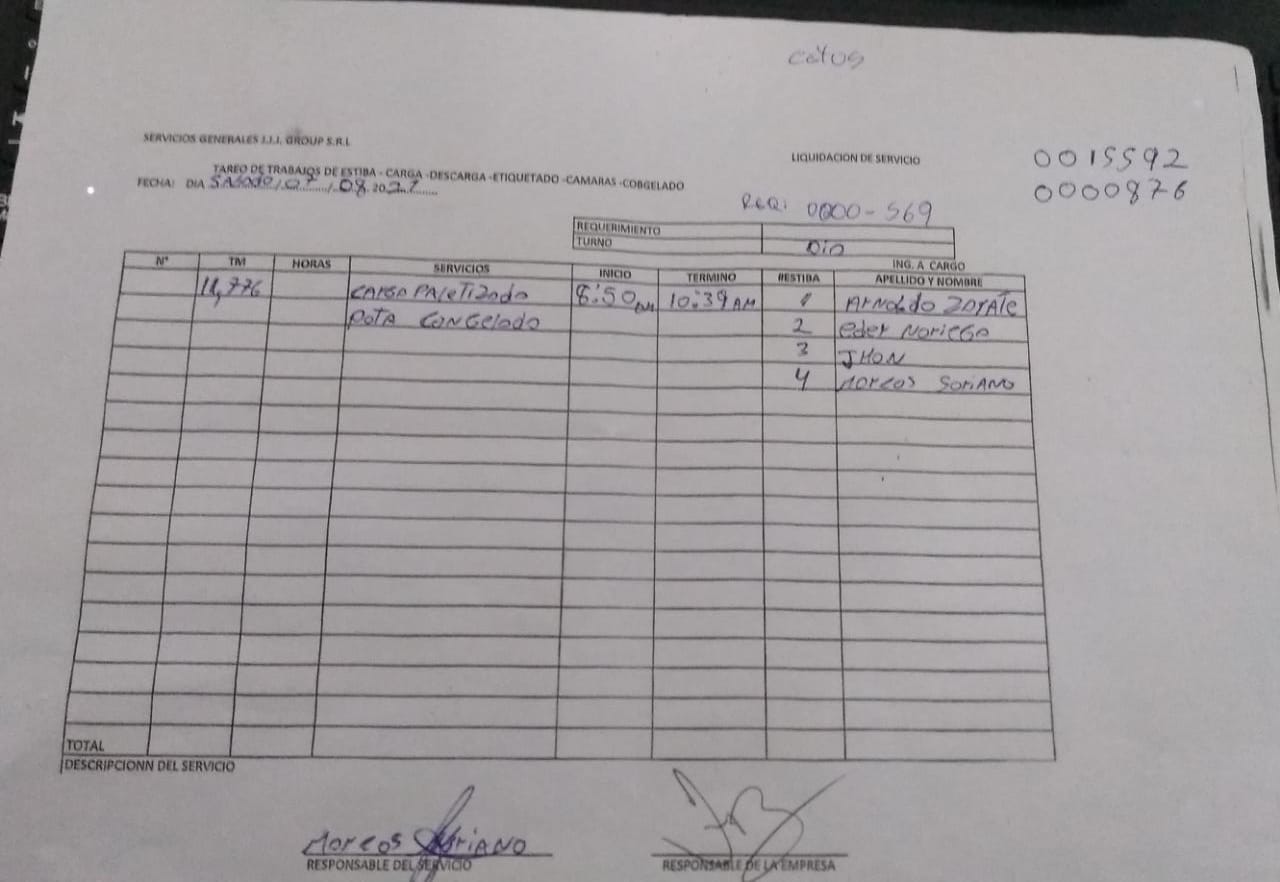 ceyus
SERVICIOS GENERALES J.J.J. GROUP S.R.L
LIQUIDACION DE SERVICIO
0015592
TAREO DE TRABAJOS DE ESTIBA - CARGA -DESCARGA -ETIQUETADO -CAMARAS -COBGELADO
0000876
FECHA: DIA SABADO/07/08.2021
REQ: 0000-569
REQUERIMIENTO
TURNO DIA
ING. A CARGO
N° TM HORAS SERVICIOS INICIO TERMINO #ESTIBA APELLIDO Y NOMBRE
11,776 CARGA PALETIZADA 8:50am 10:39AM 1 ARNALDO ZARATE
POTA CONGELADO 2 eder NORIEGA
3 JHON
4 MARCOS SORIANO
TOTAL
DESCRIPCIONN DEL SERVICIO
MARCOS SORIANO
RESPONSABLE DEL SERVICIO RESPONSABLE DE LA EMPRESA